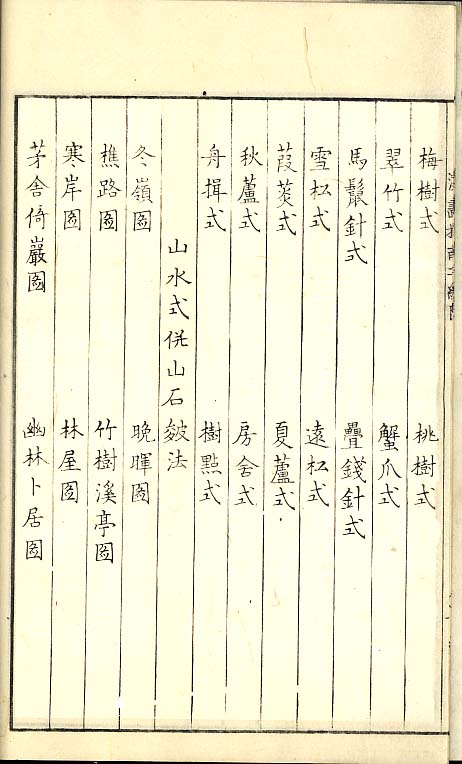 梅樹式　桃樹式
翠竹式　蟹爪式
馬鬣針式　疊錢針式
雪松式　遠松式
葭菼式　夏蘆式
秋蘆式　房舍式
舟揖式　樹點式
山水式併山石皴法
冬嶺圖　晚暉圖
樵路圖　竹樹溪亭圖
寒岸圖　林屋圖
茅舍倚巖圖　幽林卜居圖